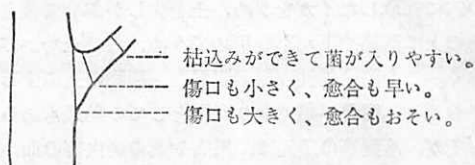 枯込みができて菌が入りやすい。
傷口も小さく、愈合も早い。
傷口も大きく、愈合もおそい。